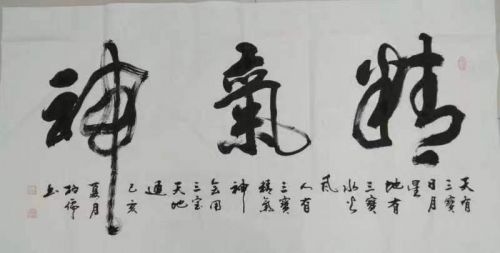 精氣神
天有
三寶
日月
星
地有
三寶
水火
風
人有
三寶
精氣
神
会用
三宝
天地
通
己亥
夏月
书